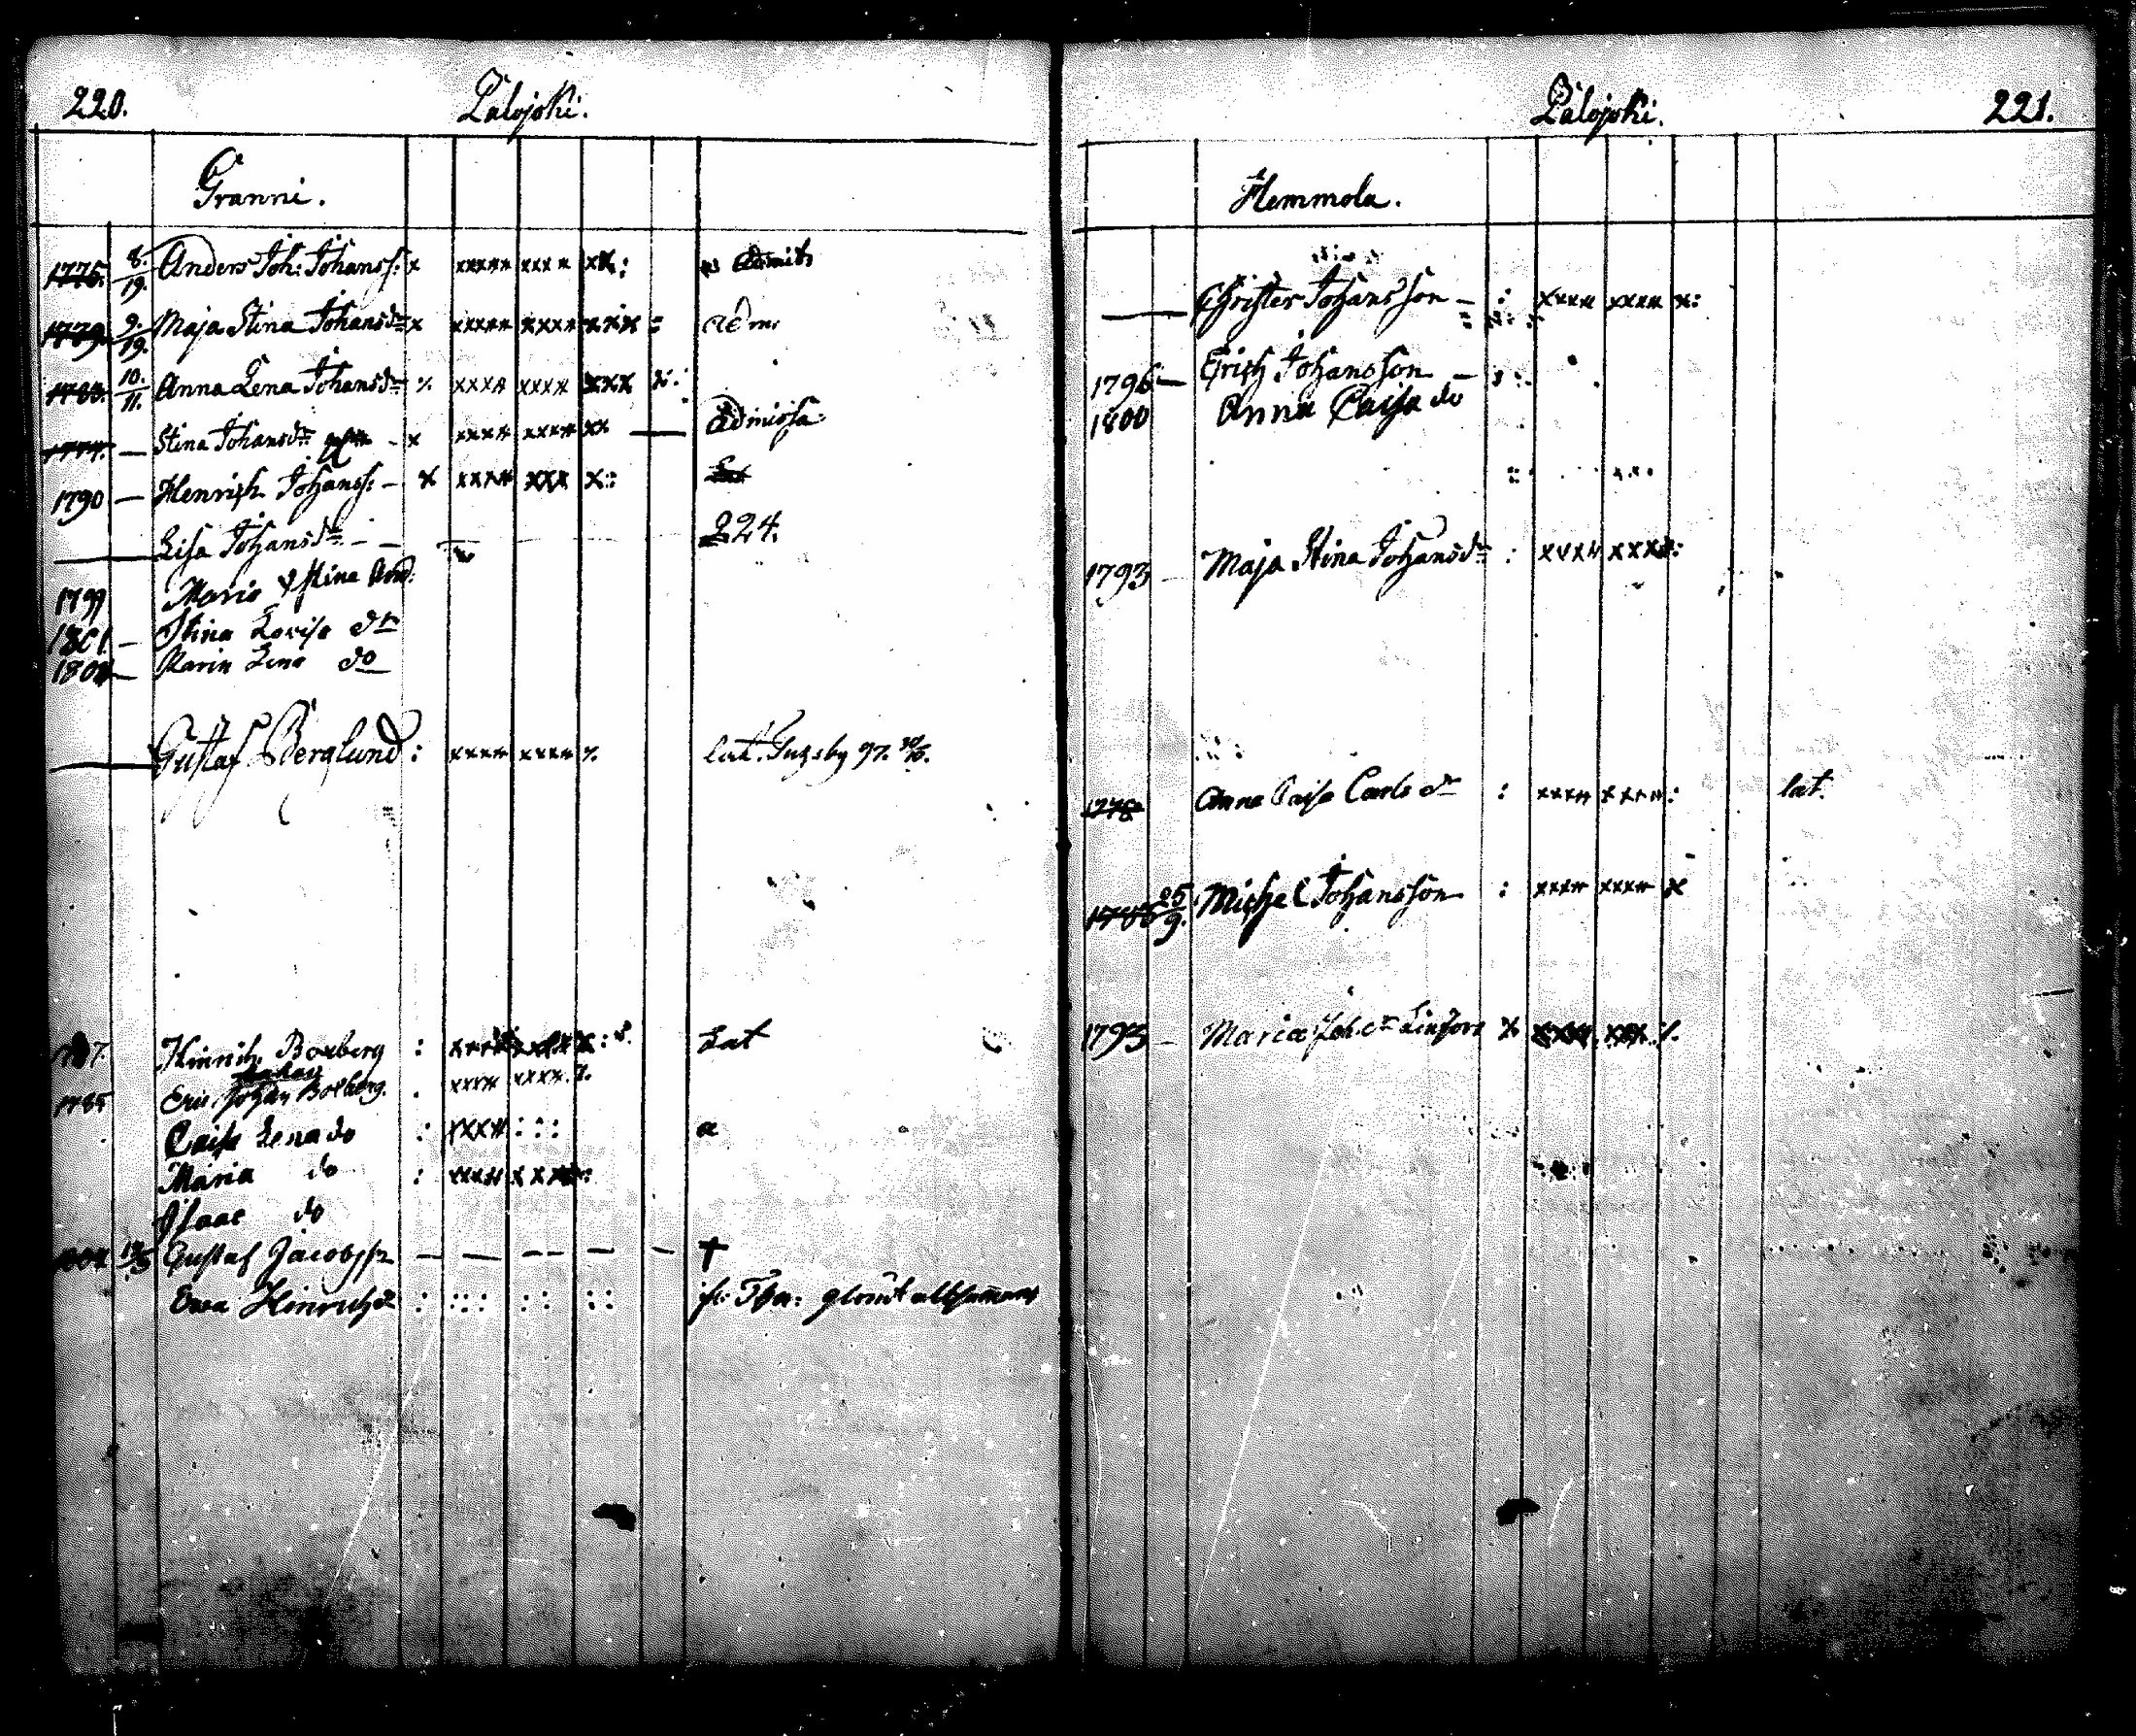 220. Palojoki.
Granni.
1775. 8./19. Anders Joh: Johanss: x xxxxx xxx x xx: admits
1779. 9./19. Maja Stina Johansdr x xxxxx xxxx xxx : adm:
1783. 10./11. Anna Lena Johansdr x xxxx xxxx xxx x:
1774. — Stina Johansdr - x xxxx xxxx xx — admissa
1790 — Henrich Johanss: - x xxxx xxx x::
Lisa Johansdr - - 224.
1799 Maria Stina And:
1801 — Stina Lovisa dr
180 — Karin Lena do
Gustaf Berglund : xxxx xxxx x lat. Tusby 97.
Hinrich Boxberg : Lat
1785 Eric Johan Boxberg. . xxxx xxxx x
Caisa Lena do : xxxx : : : a
Maria do : xxxx x x
Isaac do
Gustaf Jacobss — — -- — — †
Ewa Hinrichsdr : ::: :: ::
Palojoki. 221.
Hemmola.
— Christer Johansson — : xxxx xxxx x:
1796 — Erich Johansson —
1800 Anna Caisa do
1793 — Maja Stina Johansdr : xxxx xxxx:
1778 Anna Caisa Carls dr : xxxx xxxx: lat.
25/9. Michel Johansson : xxxx xxxx x
1793 — Maria Joh dr Linfors x xxxx xxx x